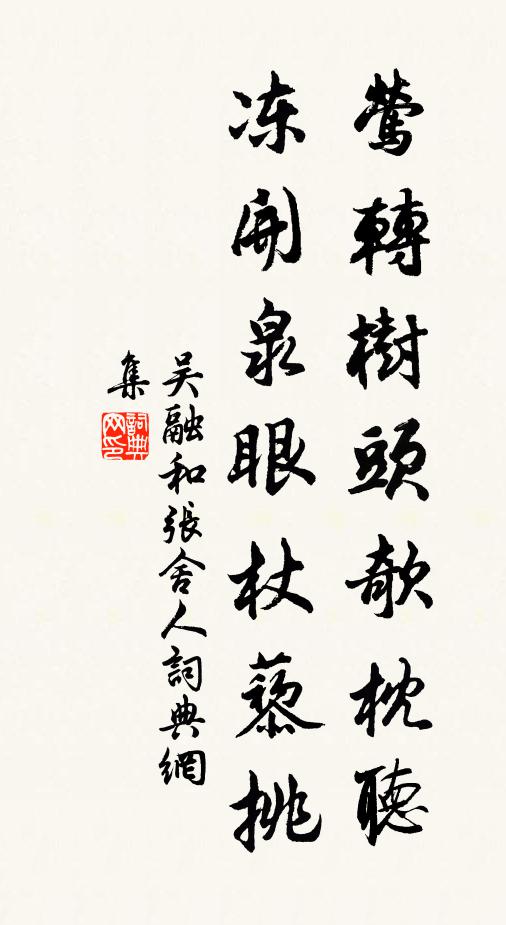 鶯轉樹頭欹枕聽
凍開泉眼杖藜挑
吴融和張舍人詞典網
集
詞典
网印